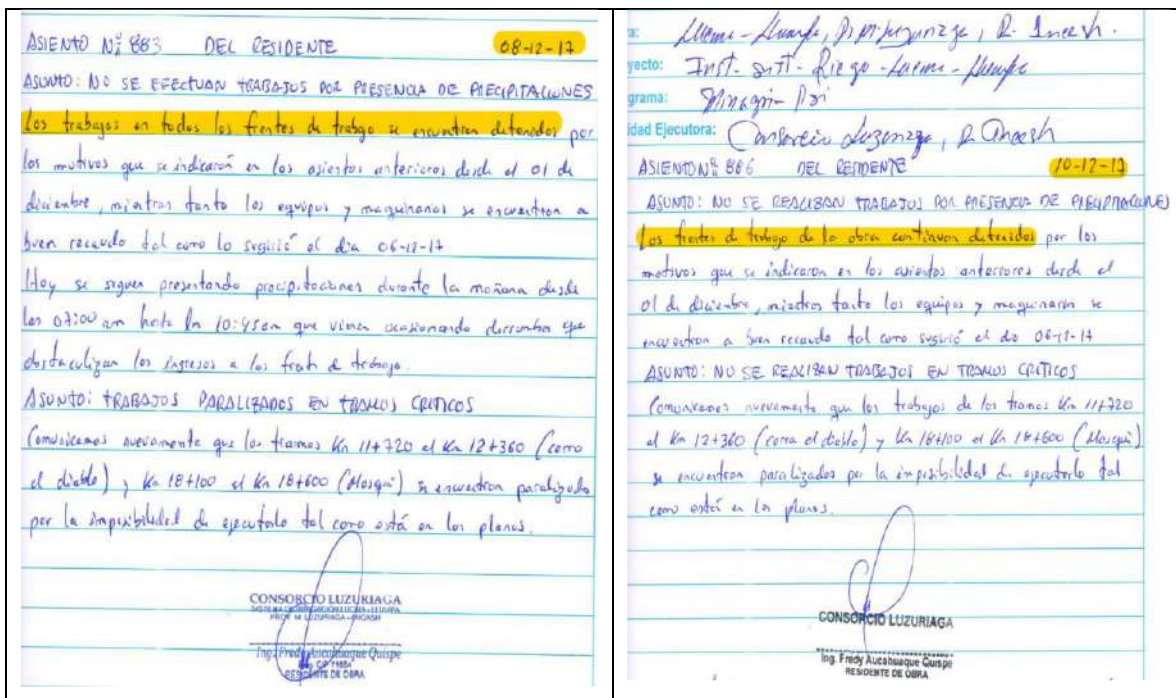 ASIENTO Nº 883 DEL RESIDENTE 08-12-17
ASUNTO: NO SE EFECTUAN TRABAJOS POR PRESENCIA DE PRECIPITACIONES
Los trabajos en todos los frentes de trabajo se encuentran detenidos por
los motivos que se indicarón en los asientos anteriores desde el 01 de
diciembre, mientras tanto los equipos y maquinarias se encuentran a
buen recaudo tal como lo sugirió el dia 06-12-17
Hoy se siguen presentando precipitaciones durante la mañana desde
las 07:00 am hasta las 10:45am que vienen ocasionando derrumbes que
obstaculizan los ingresos a los frentes de trabajo.
ASUNTO: TRABAJOS PARALIZADOS EN TRAMOS CRITICOS
Comunicamos nuevamente que los tramos Km 11+720 al Km 12+360 (cerro
el diablo) y Km 18+100 al Km 18+600 (Mosqui) se encuentran paralizados
por la imposibilidad de ejecutarlo tal como está en los planos.
CONSORCIO LUZURIAGA
Ing. Fredy Aucahuaque Quispe
RESIDENTE DE OBRA
a:
yecto: Inst. Riego
grama: Minagri - Psi
idad Ejecutora: Consorcio Luzuriaga,
ASIENTO Nº 886 DEL RESIDENTE 10-12-17
ASUNTO: NO SE REALIZAN TRABAJOS POR PRESENCIA DE PRECIPITACIONES
Los frentes de trabajo de la obra continuan detenidos por los
motivos que se indicaron en los asientos anteriores desde el
01 de diciembre, mientras tanto los equipos y maquinaria se
encuentran a buen recaudo tal como sugirió el dia 06-12-17
ASUNTO: NO SE REALIZAN TRABAJOS EN TRAMOS CRITICOS
Comunicamos nuevamente que los trabajos de los tramos Km 11+720
al Km 12+360 (cerro el diablo) y Km 18+100 al Km 18+600 (Mosqui)
se encuentran paralizados por la imposibilidad de ejecutarlo tal
como está en los planos.
CONSORCIO LUZURIAGA
Ing. Fredy Aucahuaque Quispe
RESIDENTE DE OBRA